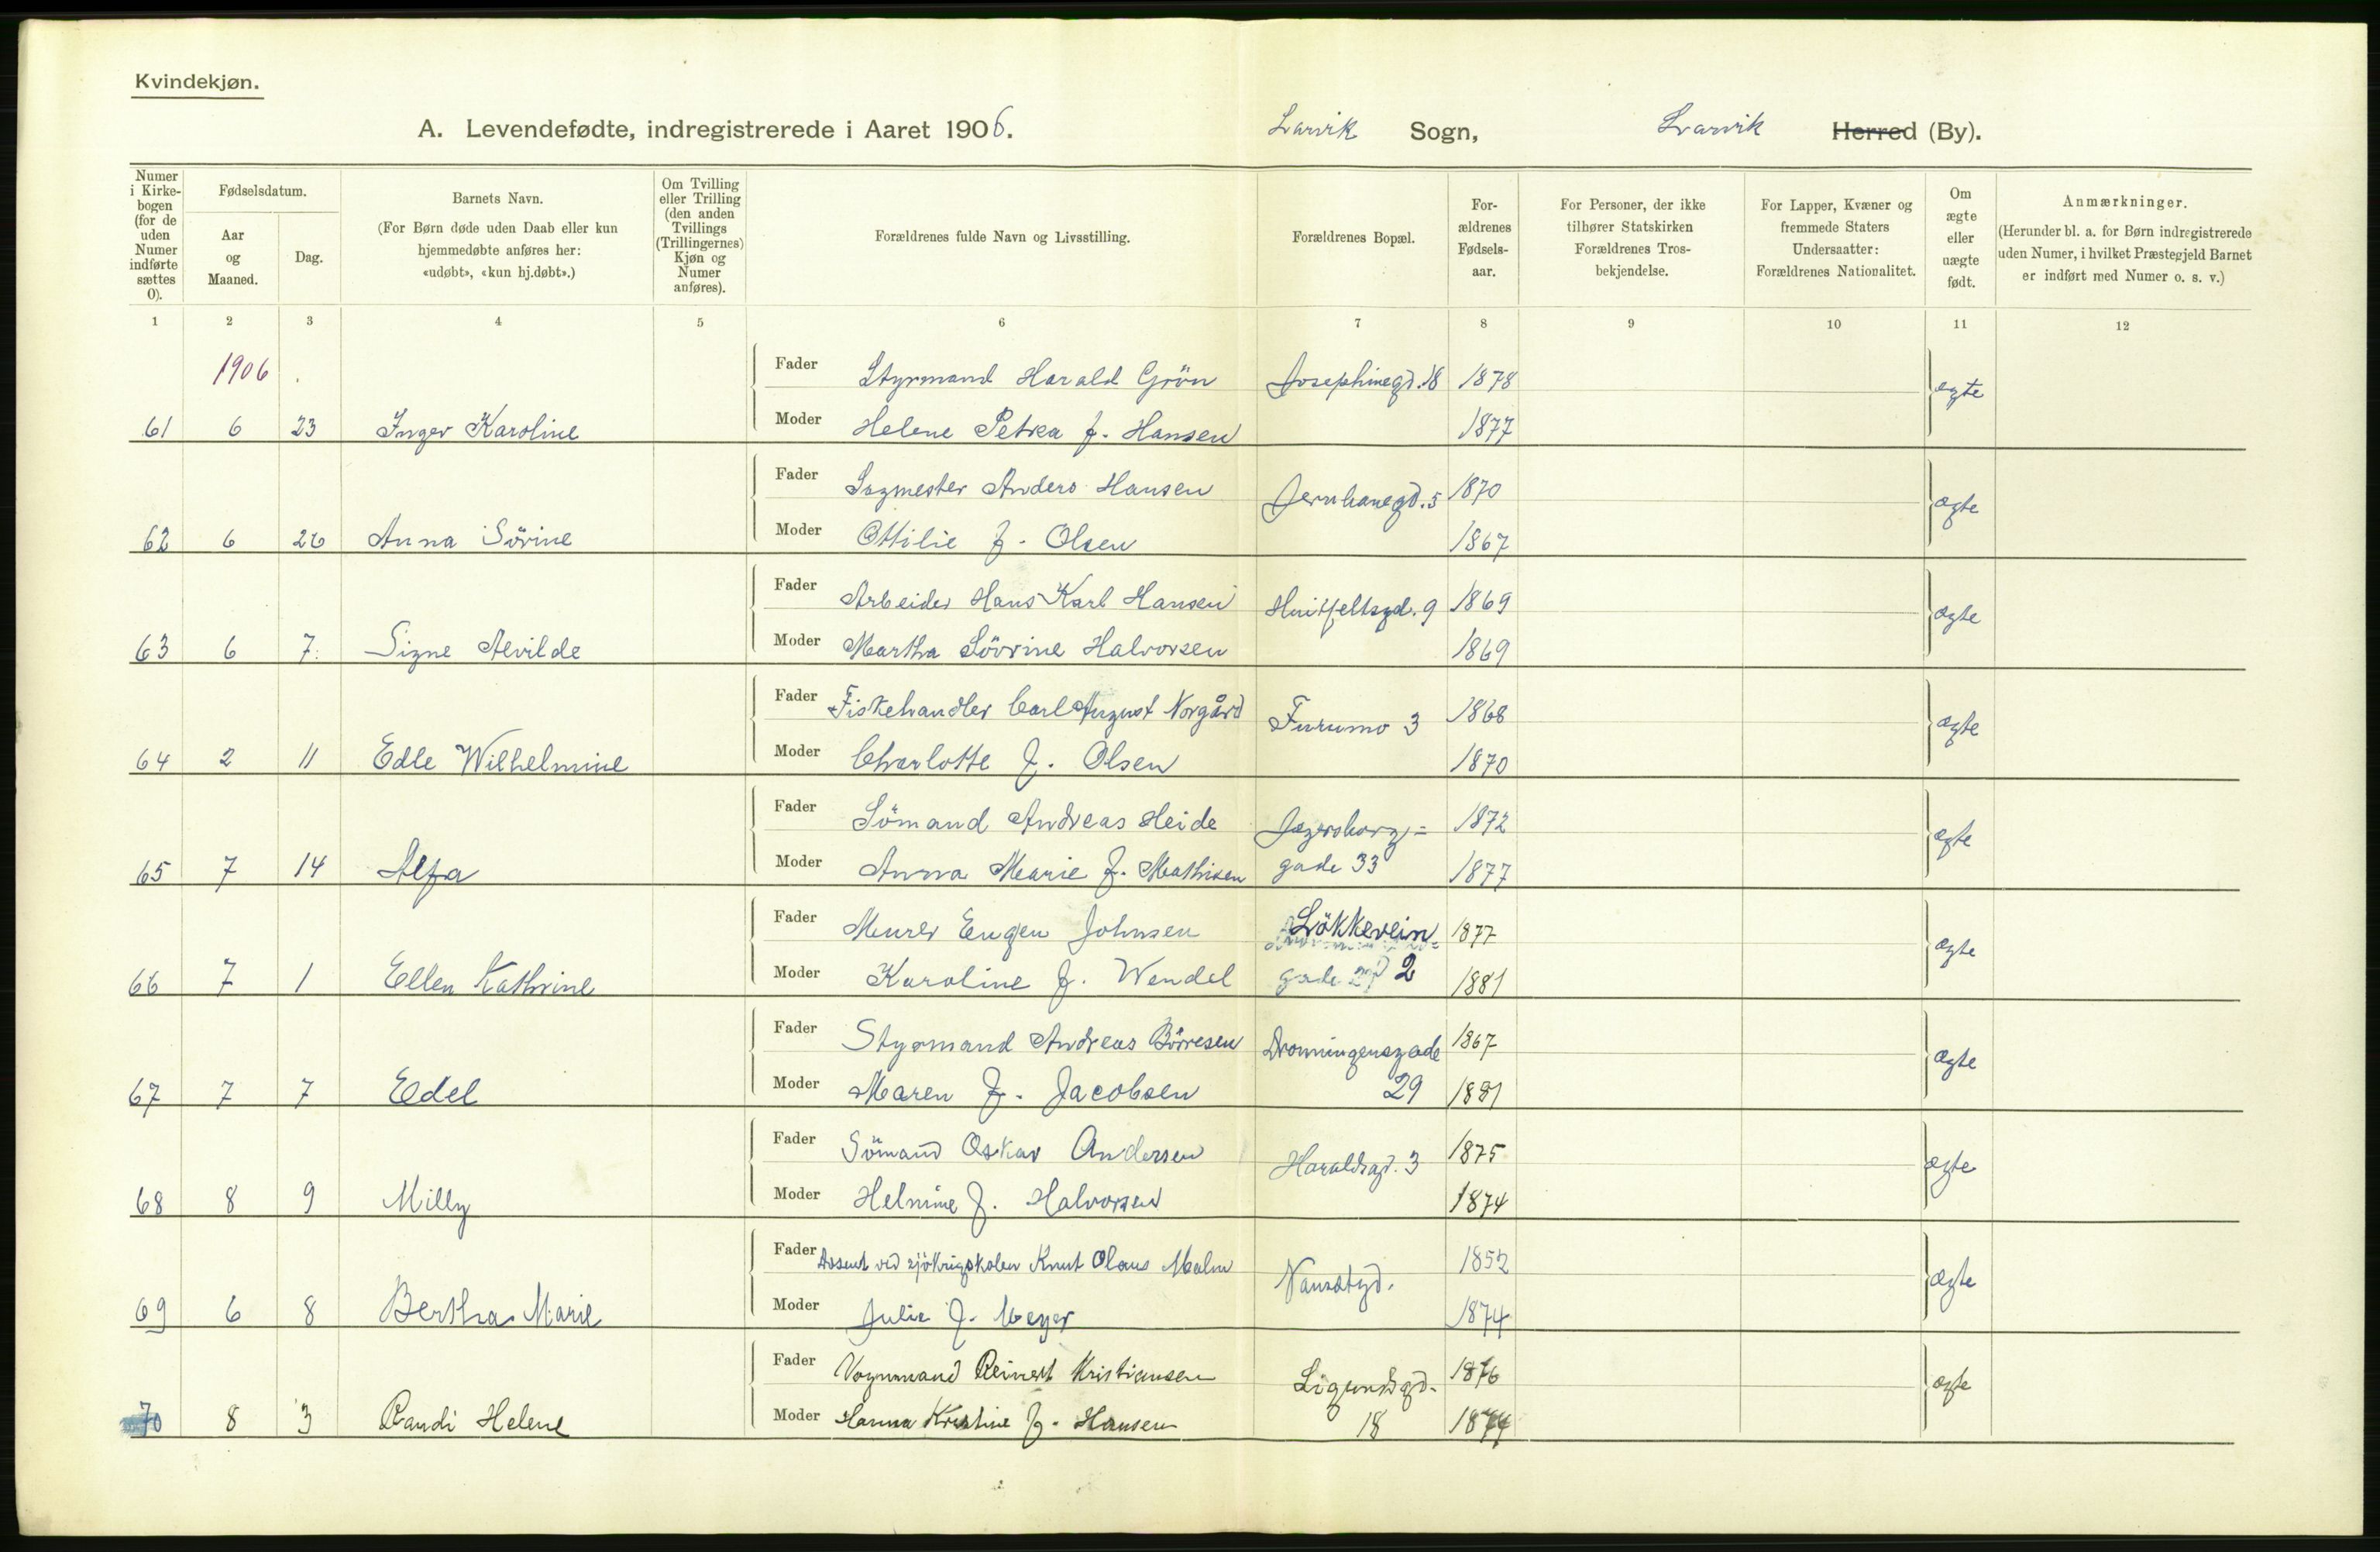 Kvindekjøn.
A. Levendefødte, indregistrerede i Aaret 1906. Larvik Sogn, Larvik Herred (By).
Numer i Kirkebogen (for de uden Numer indførte sættes 0).
Fødselsdatum.
Aar og Maaned.
Dag.
Barnets Navn.
(For Børn døde uden Daab eller kun hjemmedøbte anføres her: «udøbt», «kun hj.døbt».)
Om Tvilling eller Trilling (den anden Tvillings (Trillingernes) Kjøn og Numer anføres).
Forældrenes fulde Navn og Livsstilling.
Forældrenes Bopæl.
Forældrenes Fødselsaar.
For Personer, der ikke tilhører Statskirken Forældrenes Trosbekjendelse.
For Lapper, Kvæner og fremmede Staters Undersaatter: Forældrenes Nationalitet.
Om ægte eller uægte født.
Anmærkninger.
(Herunder bl. a. for Børn indregistrerede uden Numer, i hvilket Præstegjeld Barnet er indført med Numer o. s. v.)
1 2 3 4 5 6 7 8 9 10 11 12
1906
Fader Styrmand Harald Grön Josephinegd. 18 1878 ægte
61 6 23 Inger Karoline Moder Helene Petrea f. Hansen 1877
Fader Sagmester Anders Hansen Jernbanegd. 5 1870 ægte
62 6 26 Anna Sörine Moder Ottilie f. Olsen 1867
Fader Arbeider Hans Karl Hansen Huitfeltsgd. 9 1869 ægte
63 6 7 Signe Alvilde Moder Martha Sövrine Halvorsen 1869
Fader Fiskehandler Carl August Norgård Furumo 3 1868 ægte
64 2 11 Edle Wilhelmine Moder Charlotte f. Olsen 1870
Fader Sömand Andreas Heide Jegersborg= 1872 ægte
65 7 14 Alfa Moder Anna Marie f. Mathisen gade 33 1877
Fader Murer Eugen Johnsen Lökkeveien 1877 ægte
66 7 1 Ellen Kathrine Moder Karoline f. Wendel gade 2 1881
Fader Styrmand Andreas Börresen Dronningensgade 1867 ægte
67 7 7 Edel Moder Maren f. Jacobsen 29 1881
Fader Sömand Oskar Andersen Haraldsgd. 3 1875 ægte
68 8 9 Milly Moder Helmine f. Halvorsen 1874
Fader ved sjökrigskolen Knut Olaus Malm Nansetgd. 1852 ægte
69 6 8 Bertha Marie Moder Julie f. Meyer 1874
Fader Vognmand Reinert Kristiansen Sigurdsgd. 1876 ægte
70 8 3 Randi Helene Moder Hanna Kristine f. Hansen 18